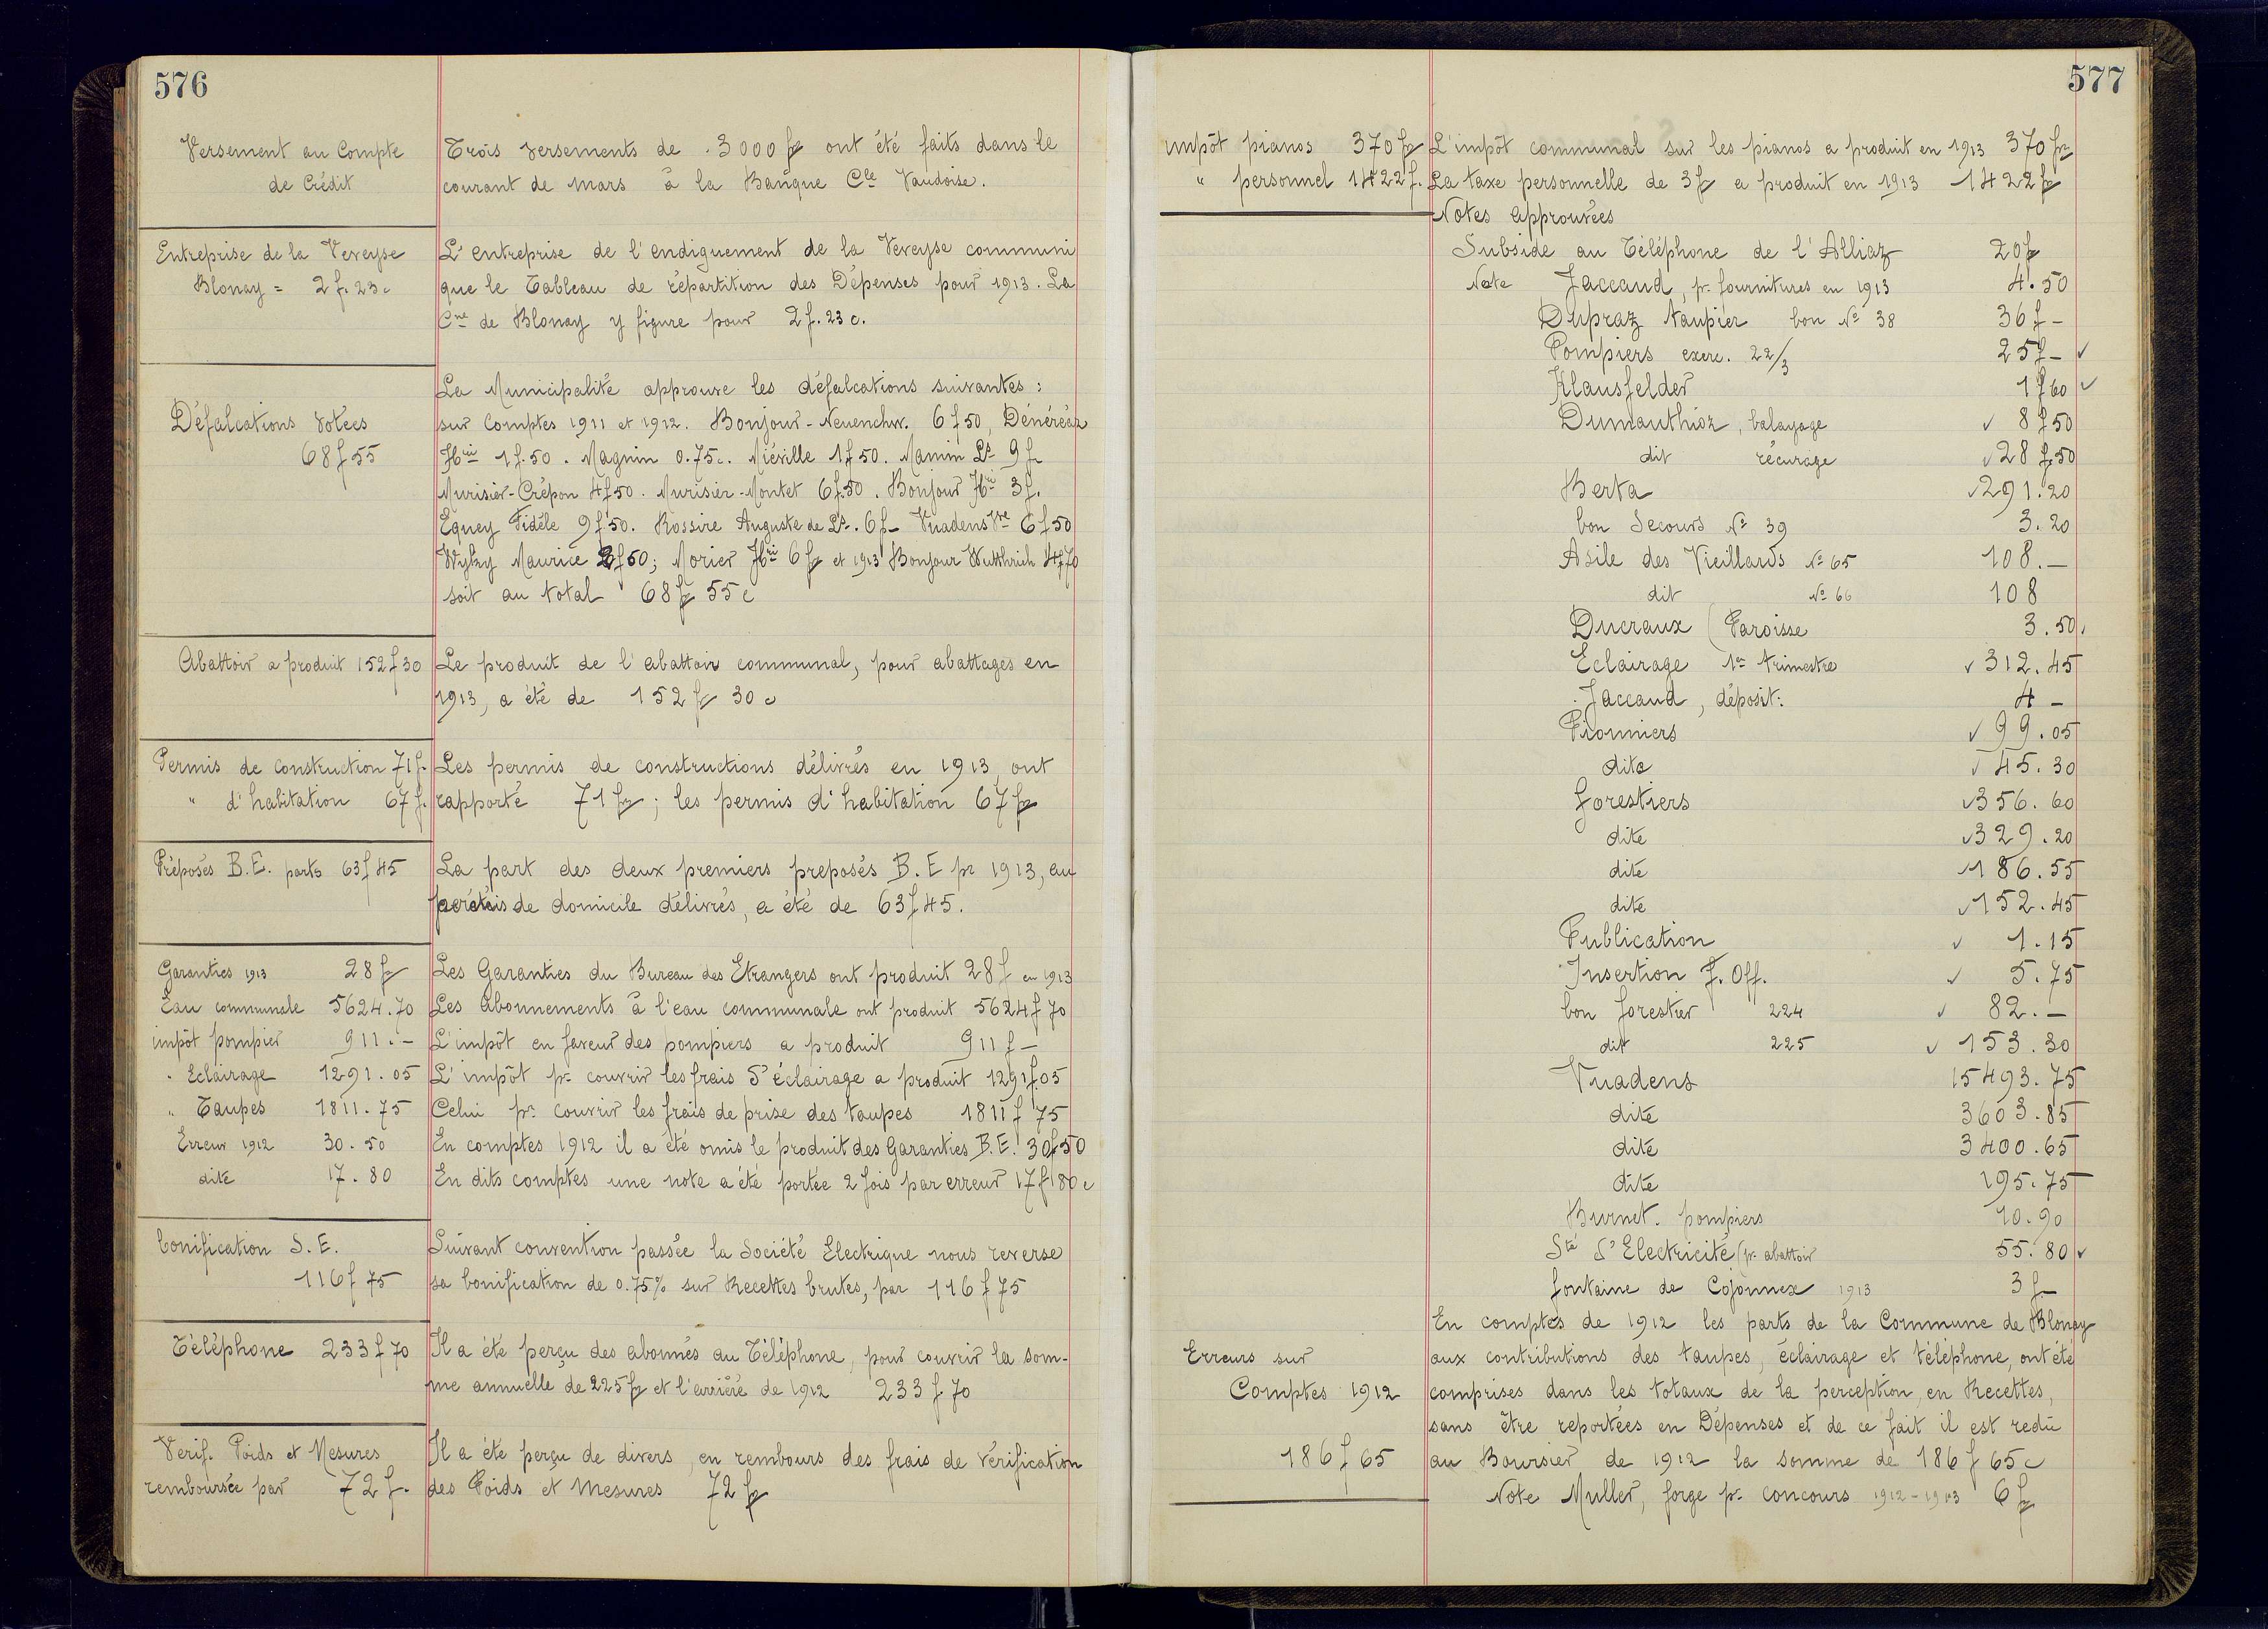 576
Versement au Compte
de Crédit
Trois versements de 3000 fr ont été faits dans le
courant de mars à la Banque Cle Vaudoise.
Entreprise de la Veveyse
Blonay = 2 f. 23 c
L'entreprise de l'endiguement de la Veveyse communi
que le Tableau de répartition des Dépenses pour 1913. La
Cne de Blonay y figure pour 2 f. 23 c.
Défalcations votées
68 f 55
La Municipalité approuve les défalcations suivantes :
sur Comptes 1911 et 1912. Bonjour-Neuenchw. 6 f 50, Dénéréaz
Hri 1 f. 50. Magnin 0.75 c. Miéville 1 f 50. Mamin Ls 9 f.
Murisier-Crépon 4 f 50. Murisier-Montet 6 f. 50. Bonjour Hri 3 f.
Equey Fidèle 9 f 50. Rossire Auguste de Ls. 6 f - Vuadens Vve 6 f 50
Wyky Maurice 2 f 50; Morier Hri 6 fr et 1913 Bonjour Wuthrich 4 f 70
soit au total 68 fr 55 c
Abattoir a produit 152 f 30
Le produit de l'abattoir communal, pour abattages en
1913, a été de 152 fr 30 c
Permis de construction 71 f.
" d'habitation 67 f.
Les permis de constructions délivrés en 1913, ont
rapporté 71 fr ; les permis d'habitation 67 fr
Préposés B.E. parts 63 f 45
La part des deux premiers preposés B.E pr 1913, au
de domicile délivrés, a été de 63 f 45.
Garanties 1913 28 fr
Eau communale 5624.70
impôt pompier 911.-
" Eclairage 1291.05
" Taupes 1811.75
Erreur 1912 30.50
dite 17.80
Les Garanties du Bureau des Etrangers ont produit 28 f en 1913
Les Abonnements à l'eau communale ont produit 5624 f 70
L'impôt en faveur des pompiers a produit 911 f -
L'impôt pr couvrir les frais d'éclairage a produit 1291 f. 05
Celui pr couvrir les frais de prise des taupes 1811 f 75
En comptes 1912 il a été omis le produit des Garanties B.E. 30 f 50
En dits comptes une note a été portée 2 fois par erreur 17 f 80 c
bonification S.E.
116 f 75
Suivant convention passée la Société Electrique nous reverse
sa bonification de 0.75% sur Recettes brutes, par 116 f 75
Téléphone 233 f 70
Il a été perçu des abonnés au Téléphone, pour couvrir la som-
me annuelle de 225 fr et l'arriéré de 1912 233 f 70
Verif. Poids et Mesures
remboursée par 72 f.
Il a été perçu de divers, en rembours des frais de vérification
des Poids et Mesures 72 fr
577
impôt pianos 370 fr
" personnel 1422 f.
L'impôt communal sur les pianos a produit en 1913 370 fr
La taxe personnelle de 3 fr a produit en 1913 1422 fr
Notes approuvées
Subside au Téléphone de l'Alliaz 20 fr
Note Jaccaud, pr fournitures en 1913 4.50
Dupraz taupier bon No 38 36 f -
Pompiers exerc. 22/3 25 f - ✓
Klausfelder 1 f 60 ✓
Dumauthioz, balayage ✓ 8 f 50
dit récurage ✓ 28 f. 50
Berta ✓ 291.20
bon Secours No 39 3.20
Asile des Vieillards No 65 108.-
dit No 66 108
Ducraux (Paroisse 3.50
Eclairage 1er trimestre ✓ 312.45
Jaccaud, déposit: 4 -
Pionniers ✓ 99.05
dito ✓ 45.30
forestiers ✓ 356.60
dite ✓ 329.20
dite ✓ 186.55
dite ✓ 152.45
Publication ✓ 1.15
Insertion f. Off. ✓ 5.75
bon forestier 224 ✓ 82.-
dit 225 ✓ 153.30
Vuadens 15493.75
dite 3603.85
dite 3400.65
dite 195.75
Burnet. pompiers 10.90
Sté d'Electricité (pr abattoir 55.80 ✓
fontaine de Cojonnex 1913 3 f -
Erreurs sur
Comptes 1912
186 f 65
En comptes de 1912 les parts de la Commune de Blonay
aux contributions des taupes, éclairage et téléphone, ont été
comprises dans les totaux de la perception, en Recettes,
sans être reportées en Dépenses et de ce fait il est redû
au Boursier de 1912 la somme de 186 f 65 c
Note Muller, forge pr concours 1912-1913 6 fr